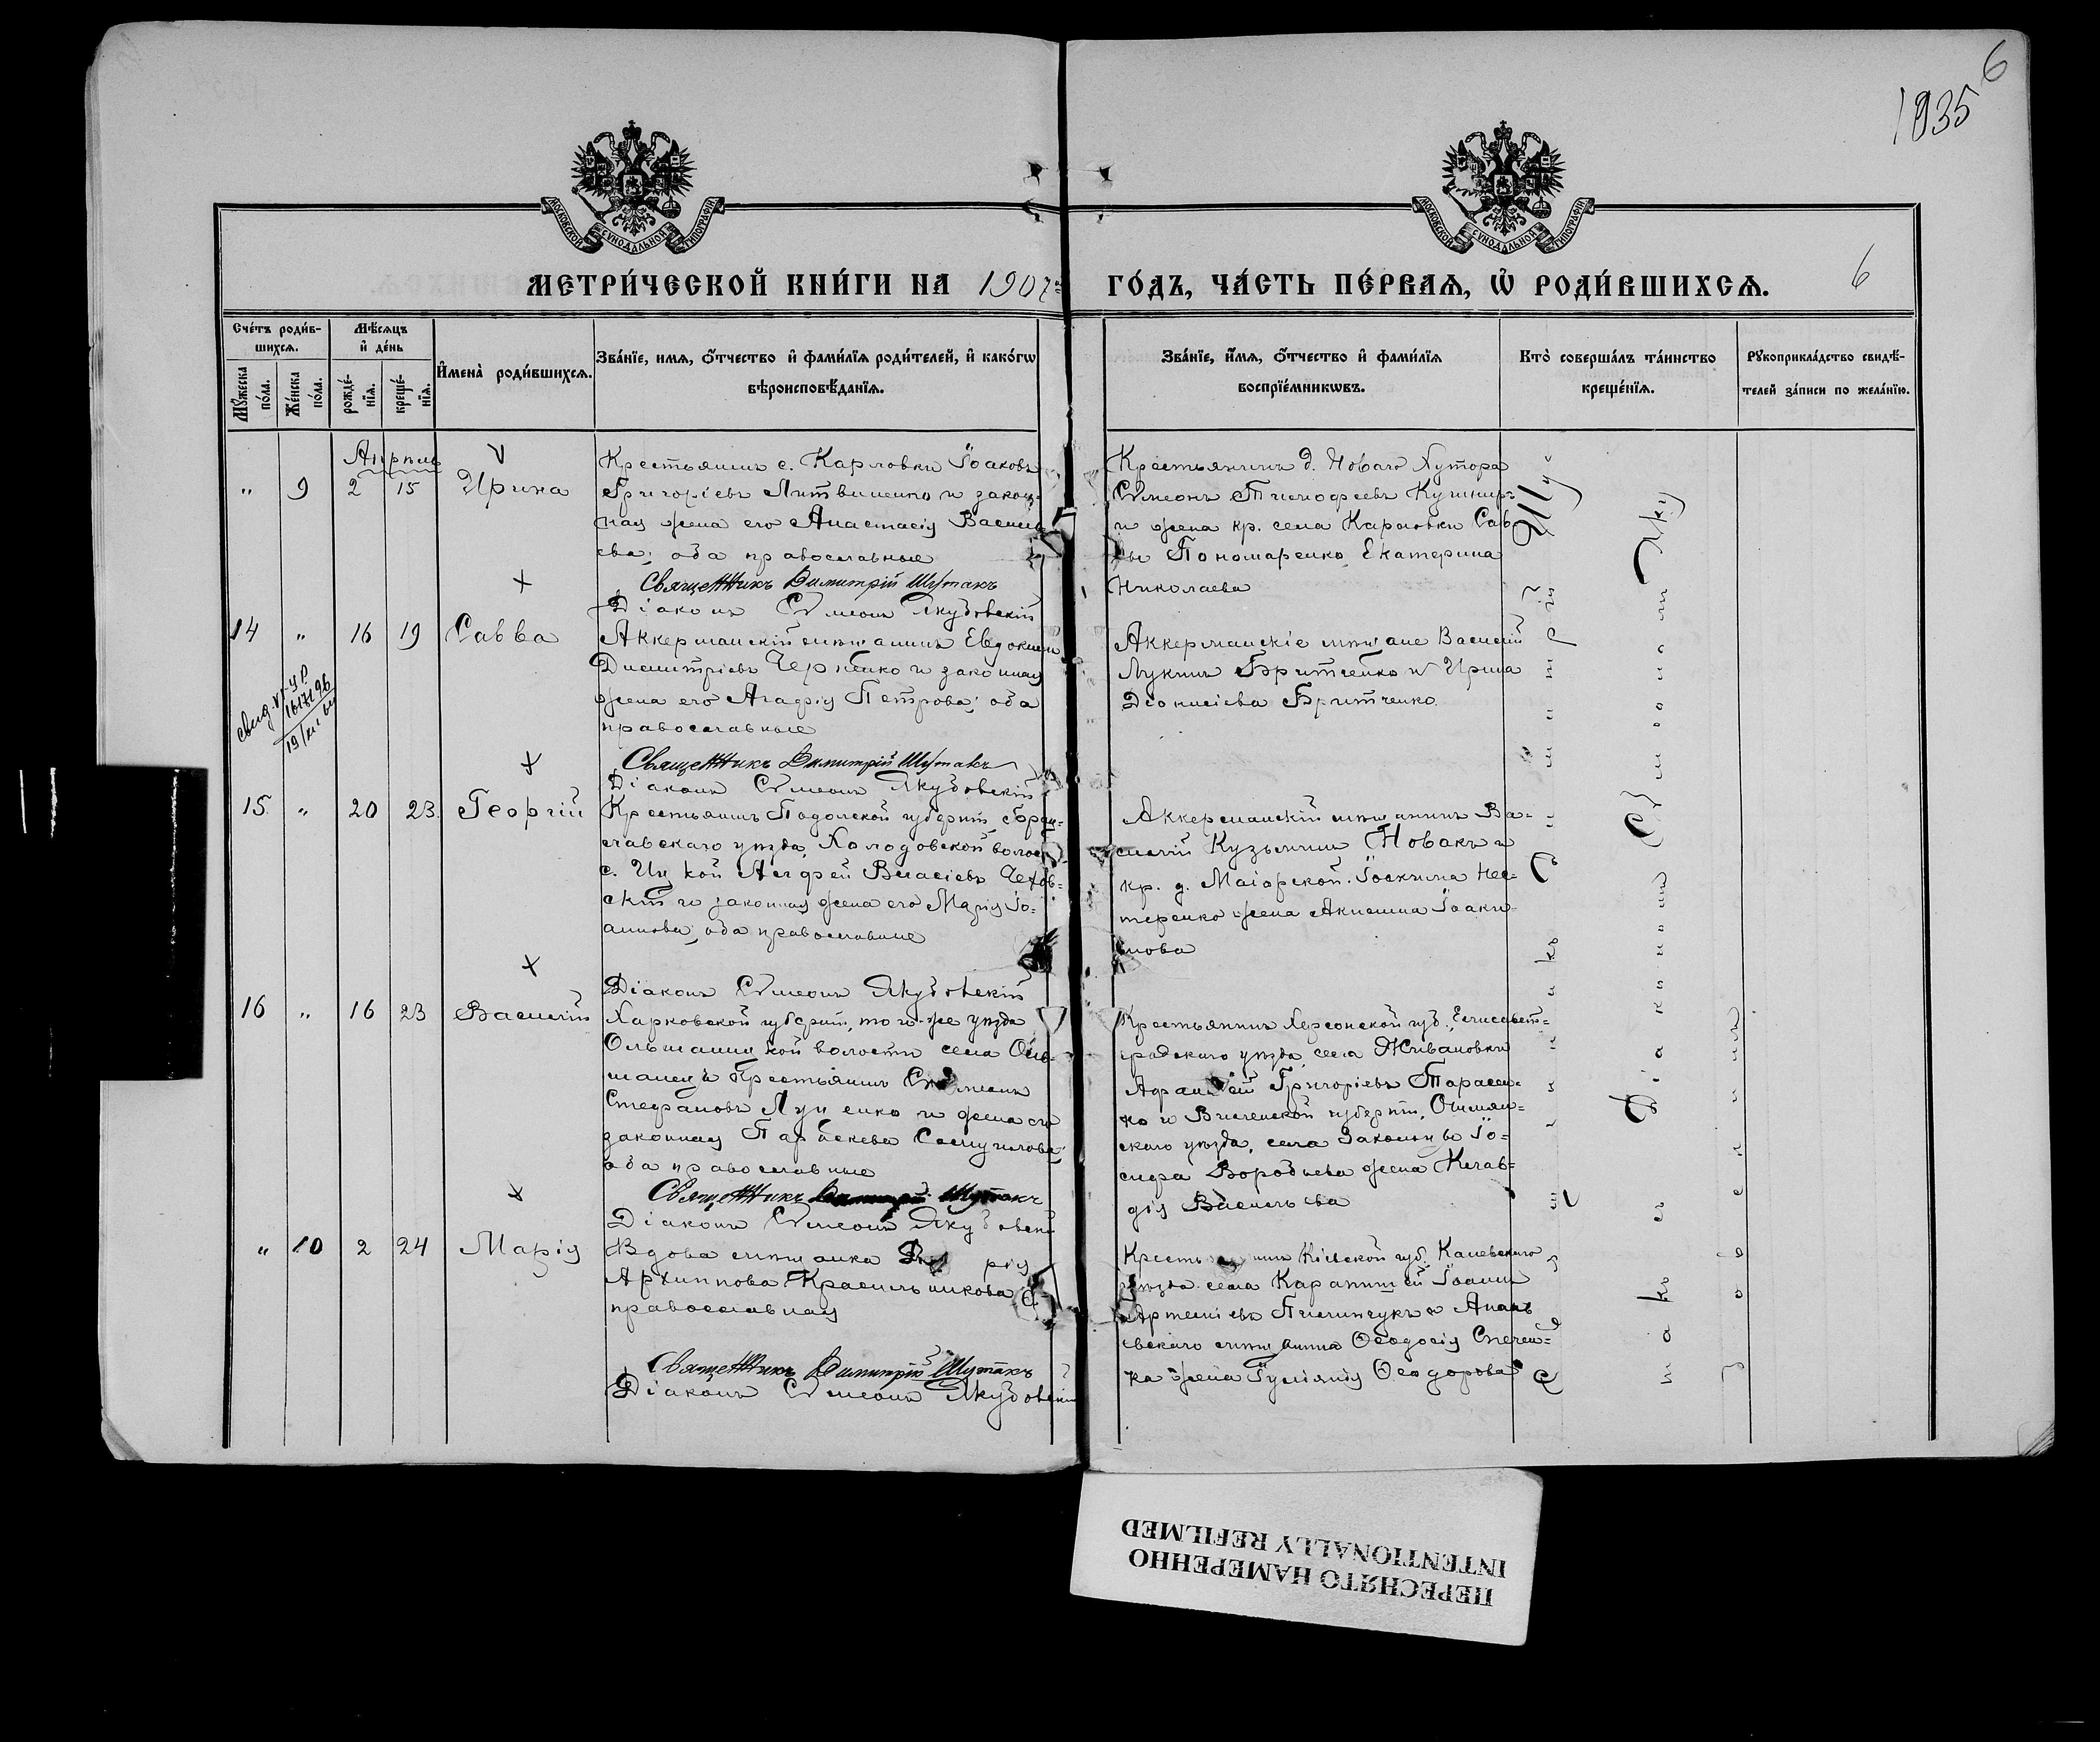 6
1935
МОСКОВСКОЙ СѴНОДАЛЬНОЙ ТИПОГРАФІИ
МОСКОВСКОЙ СѴНОДАЛЬНОЙ ТИПОГРАФІИ
МЕТРИ́ЧЕСКОЙ КНИ́ГИ НА 1907 ГО́ДЪ, ЧА́СТЬ ПЕ́РВАѦ, Ѡ҆ РОДИ́ВШИХСѦ.
6
Сче́тъ роди́в-
шихсѧ.
Мѣ́сѧцъ
и҆ де́нь
Мꙋ́жеска
по́ла.
Же́нска
по́ла.
рожде́-
нїѧ.
креще́-
нїѧ.
И҆мена̀ роди́вшихсѧ.
Зва́нїе, имѧ, ѻ҆́тчество и҆ фами́лїѧ роди́телей, и҆ како́гѡ
вѣроисповѣ́данїѧ.
Зва́нїе, и҆́мѧ, ѻ҆́тчество и҆ фами́лїѧ
воспрїе́мникѡвъ.
Кто̀ соверша́лъ та́инство
креще́нїѧ.
Рꙋкоприкла́дство свидѣ́-
телей за́писи по жела́нїю.
Апрѣль
" 9 2 15 Ирина
Крестьянинъ с. Карловки Іоаковъ
Григоріевъ Литвиненко и закон-
ная жена его Анастасія Василь-
ева, оба православные
Священникъ Димитрій Шутакъ
Діаконъ Сѵмеонъ Якубовскій
Крестьянинъ д. Новаго Хутора
Сѵмеонъ Тимофеевъ Кушнир-
и жена кр. села Карловки Сав-
вы Пономаренко Екатерина
Николаева
14 " 16 19 Савва
свид. VI-УР
161
19/XI
Аккерманскій мѣщанинъ Евдокимъ
Димитріевъ Черненко и законная
жена его Агафія Петрова, оба
православные
Священникъ Димитрій Шутакъ
Діаконъ Сѵмеонъ Якубовскій
Аккерманскіе мѣщане Василій
Лукинъ Бритченко и Ирина
Діонисіева Бритченко
15. " 20 23. Георгій
Крестьянинъ Подольской губерніи,
уѣзда, Холодовской волос
с. Власіевъ Чехов-
скій и законная жена его Марія Іо-
аннова, оба православные
Діаконъ Сѵмеонъ Якубовскій
Аккерманскій мѣщанинъ Ва-
силій Кузьминъ Новакъ и
кр. д. Маіорской Іоакима Нес-
теренко жена Акилина Іоаки-
мова
16 " 16 23 Василій
Харьковской губерніи, того-же уѣзда
Ольшанской волости села Оль-
шанецъ крестьянинъ Сѵмеонъ
Стефановъ Луценко и жена его
законная Параскева Самуилова,
оба православные
Священникъ Димитрій Шутакъ
Діаконъ Сѵмеонъ Якубовскій
Крестьянинъ Херсонской губ., Елисавет-
градскаго уѣзда, села Живановки
Григоріевъ Тарасен-
ко и Виленской губерніи, Ошмян-
скаго уѣзда, села Іо-
сифа Воробьева жена Клав-
дія Васильева
" 10 2 24 Марія
Вдова мѣщанка
Архиппова Красильникова
православная
Священникъ Димитрій Шутакъ
Діаконъ Сѵмеонъ Якубовскій
Крестьянинъ Кіевской губ. Каневскаго
уѣзда села Карапишей Іоаннъ
Артеміевъ Пилипчукъ и Анань-
евскаго мѣщанина Ѳеодосія
жена Іуліанія Ѳеодорова
Священникъ Димитрій Шу
такъ съ Діакономъ Сѵмеономъ Яку
бовскимъ
ПЕРЕСНЯТО НАМЕРЕННО
INTENTIONALLY REFILMED